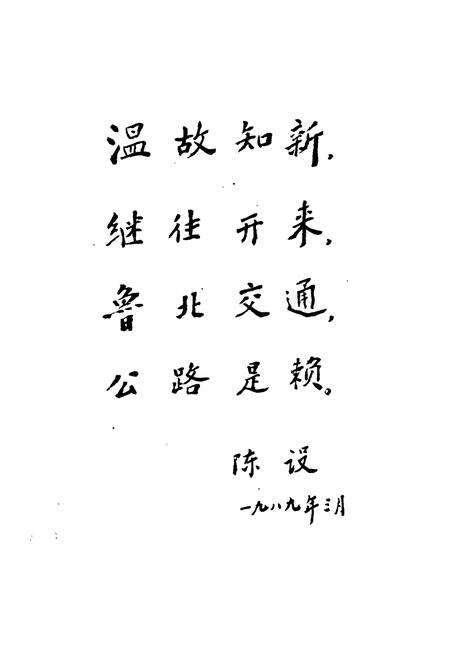 温故知新，
继往开来，
鲁北交通，
公路是赖。
陈设
一九八九年三月